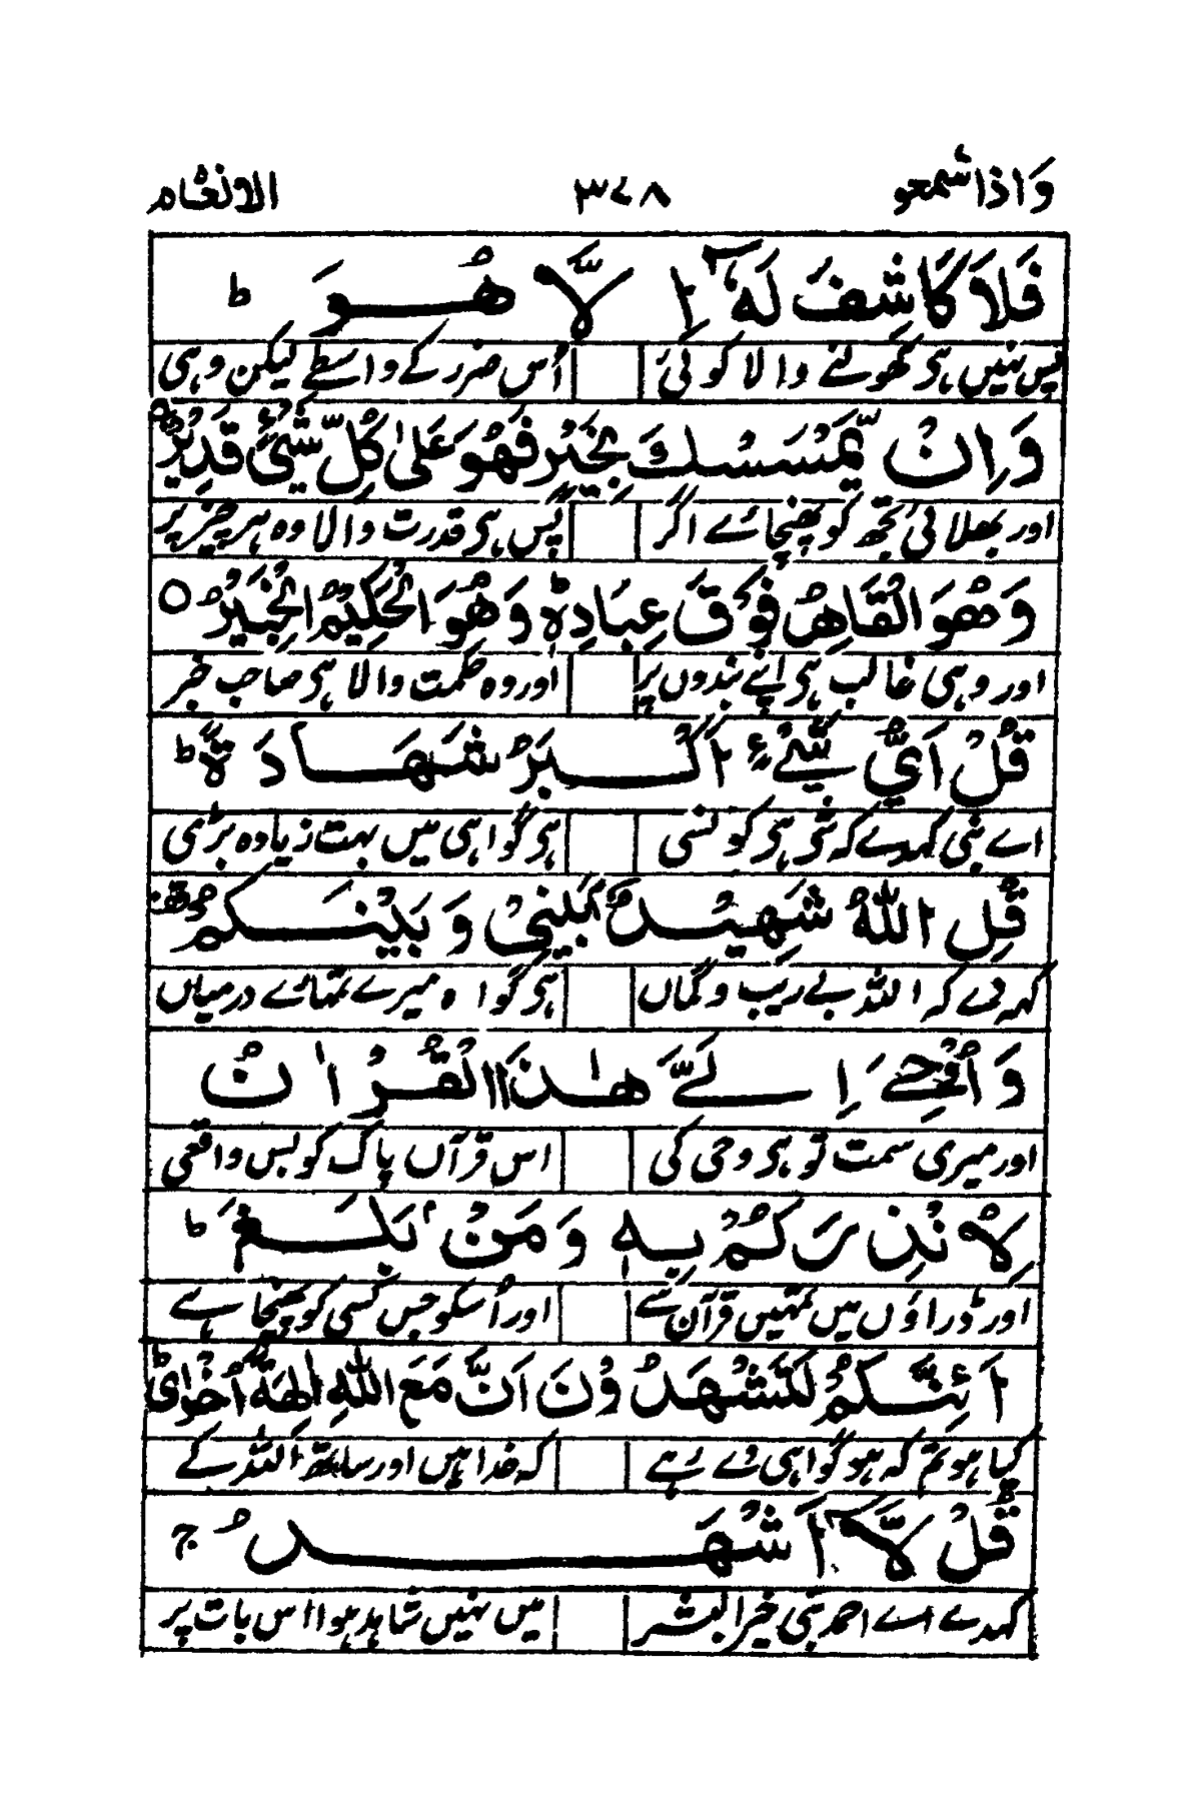 واذا سمعو ۳۷۸ الانعام
فَلَا كَاشِفَ لَهٗٓ اِلَّا هُوَ ط
پس نہیں ہی کھولنے والا کوئی اُس ضرر کے واسطے لیکن وہی
وَاِنْ يَّمْسَسْكَ بِخَيْرٍ فَهُوَ عَلٰى كُلِّ شَيْءٍ قَدِيْرٌ
اور بھلائی تجھ کو پہنچائے اگر پس ہی قدرت والا وہ ہر چیز پر
وَهُوَ الْقَاهِرُ فَوْقَ عِبَادِهٖ ط وَهُوَ الْحَكِيْمُ الْخَبِيْرُ ○
اور وہی غالب ہی اپنے بندوں پر اور وہ حکمت والا ہی صاحب خبر
قُلْ اَيُّ شَيْءٍ اَكْبَرُ شَهَادَةً ط
اے نبی کہدے کہ شی ہی کونسی ہی گواہی میں بہت زیادہ بڑی
قُلِ اللّٰهُ شَهِيْدٌۢ بَيْنِيْ وَبَيْنَكُمْ
کہدے کہ اللہ بے ریب و گماں ہی گواہ میرے تمہارے درمیاں
وَاُوْحِيَ اِلَيَّ هٰذَا الْقُرْاٰنُ
اور میری سمت تو ہی وحی کی اس قرآں پاک کو بس واقعی
لِاُنْذِرَكُمْ بِهٖ وَمَنْۢ بَلَغَ ط
اور ڈراؤں میں تمہیں قرآن سے اور اُسکو جس کسی کو پہنچا ہے
اَئِنَّكُمْ لَتَشْهَدُوْنَ اَنَّ مَعَ اللّٰهِ اٰلِهَةً اُخْرٰى ط
کیا ہو تم کہ ہو گواہی دے رہے کہ خدا ہیں اور ساتھ اللہ کے
قُلْ لَّآ اَشْهَدُ ج
کہدے اے احمد نبی خیر البشر میں نہیں شاہد ہوا اس بات پر